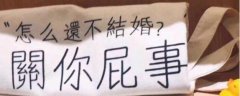 "怎么還不結婚?
關你屁事